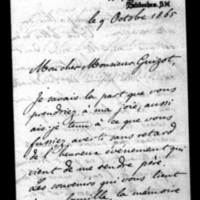 le 9 Octobre 1865
Mon cher Monsieur Guizot,
Je savais la part que vous
prendriez à ma joie, aussi
ai-je tenu à ce que vous
fussiez averti sans retard
de l'heureux évènement qui
vient de me rendre père.
Les souvenirs qui vous lient
famille la mémoire